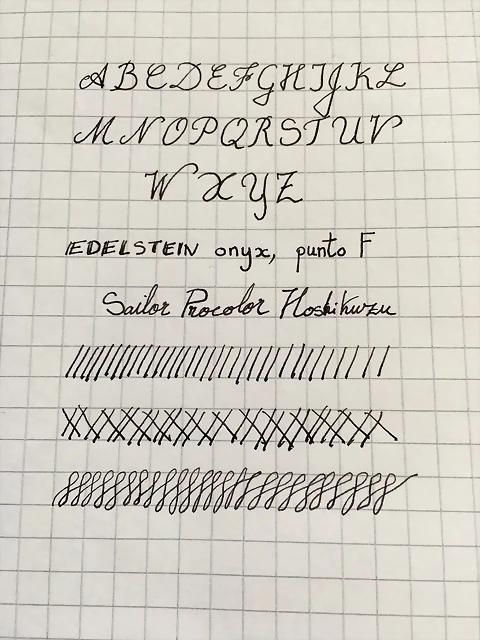 ABCDEFGHIJKL
MNOPQRSTUV
WXYZ
EDELSTEIN onyx, punto F
Sailor Procolor Hoshikuzu